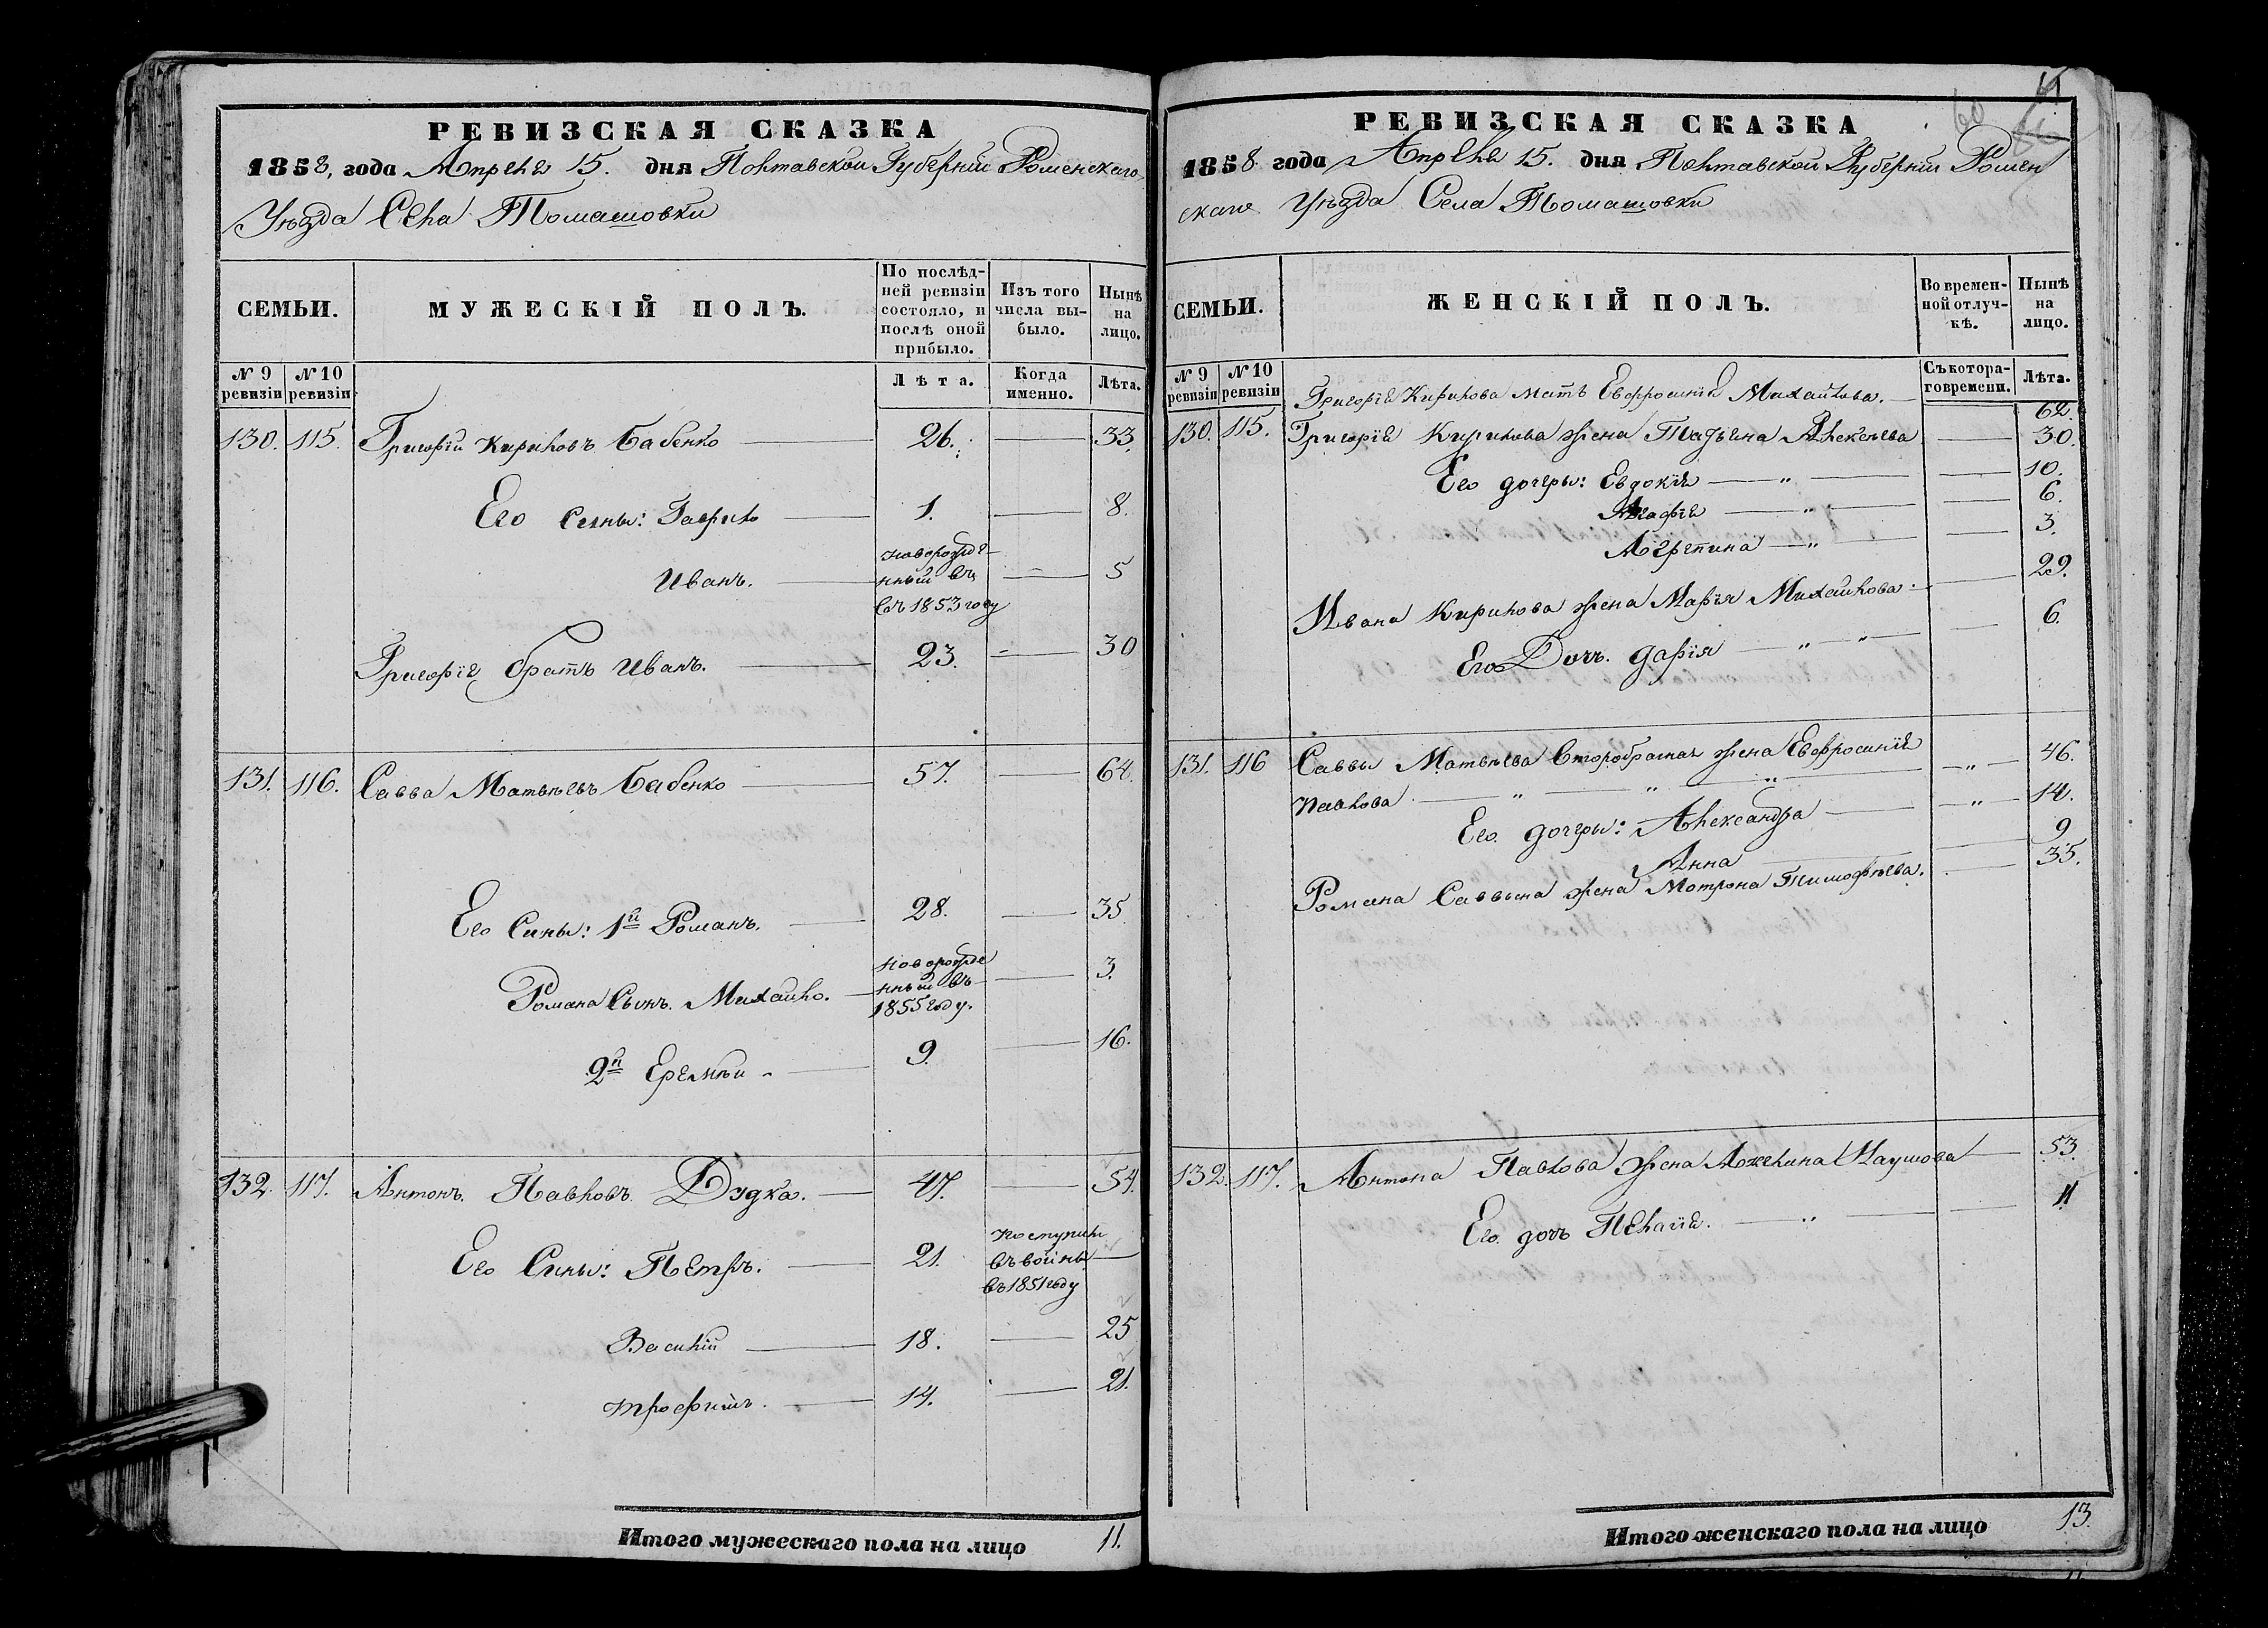 РЕВИЗСКАЯ СКАЗКА
1858, года Апреля 15. дня Полтавской Губернии Роменскаго
Уѣзда Села Томашовки
СЕМЬИ.
МУЖЕСКІЙ ПОЛЪ.
По послѣд-
ней ревизіи
состояло, и
послѣ оной
прибыло.
Изъ того
числа вы-
было.
Нынѣ
на
лицо.
№ 9
ревизіи
№ 10
ревизіи
Лѣта.
Когда
именно.
Лѣта.
130. 115. Григорій Кириловъ Бабенко 26. 33.
Его сыны: Гаврило 1. 8.
новорожде-
Иванъ. нный въ 5
въ 1853 году
Григорія братъ Иванъ. 23. 30
131. 116. Савва Матвѣевъ Бабенко 57. 64.
Его Сины: 1й Романъ. 28. 35
новорожде
Романа Сынъ. Михайло. нный въ 3.
1855 году.
2й Еремѣй 9. 16.
132. 117. Антонъ. Павловъ Дудка. 47. 54.
Его Сины: Петръ. 21.
въ 1851 году
Василій 18. 25
Трофимъ. 14. 21.
Итого мужескаго пола на лицо 11.
60
РЕВИЗСКАЯ СКАЗКА
1858 года Апреля 15. дня Полтавской Губерніи Ромен
скаго Уѣзда Села Томашовки
СЕМЬИ.
ЖЕНСКІЙ ПОЛЪ.
Во времен-
ной отлуч-
кѣ.
Нынѣ
на
лицо.
№ 9
ревизіи
№ 10
ревизіи
Съ котора-
го времени.
Лѣта.
Григорія Кирилова мать Евфросинія Михайлова. 62.
130. 115. Григорія Кирилова жена Татьяна Алексѣева 30.
Его дочеры: Евдокія „ 10.
Агафія „ 6.
Агрепина „ 3.
Ивана Кирилова жена Марья Михайлова 29.
Его Дочь. Дарія „ „ 6.
131. 116 Саввы Матвѣева Второбрачная жена Евфросинія „ 46.
Павлова „ „ „
Его дочеры: Александра „ 14.
Анна 9
Романа Саввина жена Мотрона Тимофѣева. 35.
132. 117. Антона Павлова жена Анжелина Наумова 53.
Его дочь Пелагія. „ 11
Итого женскаго пола на лицо 13.